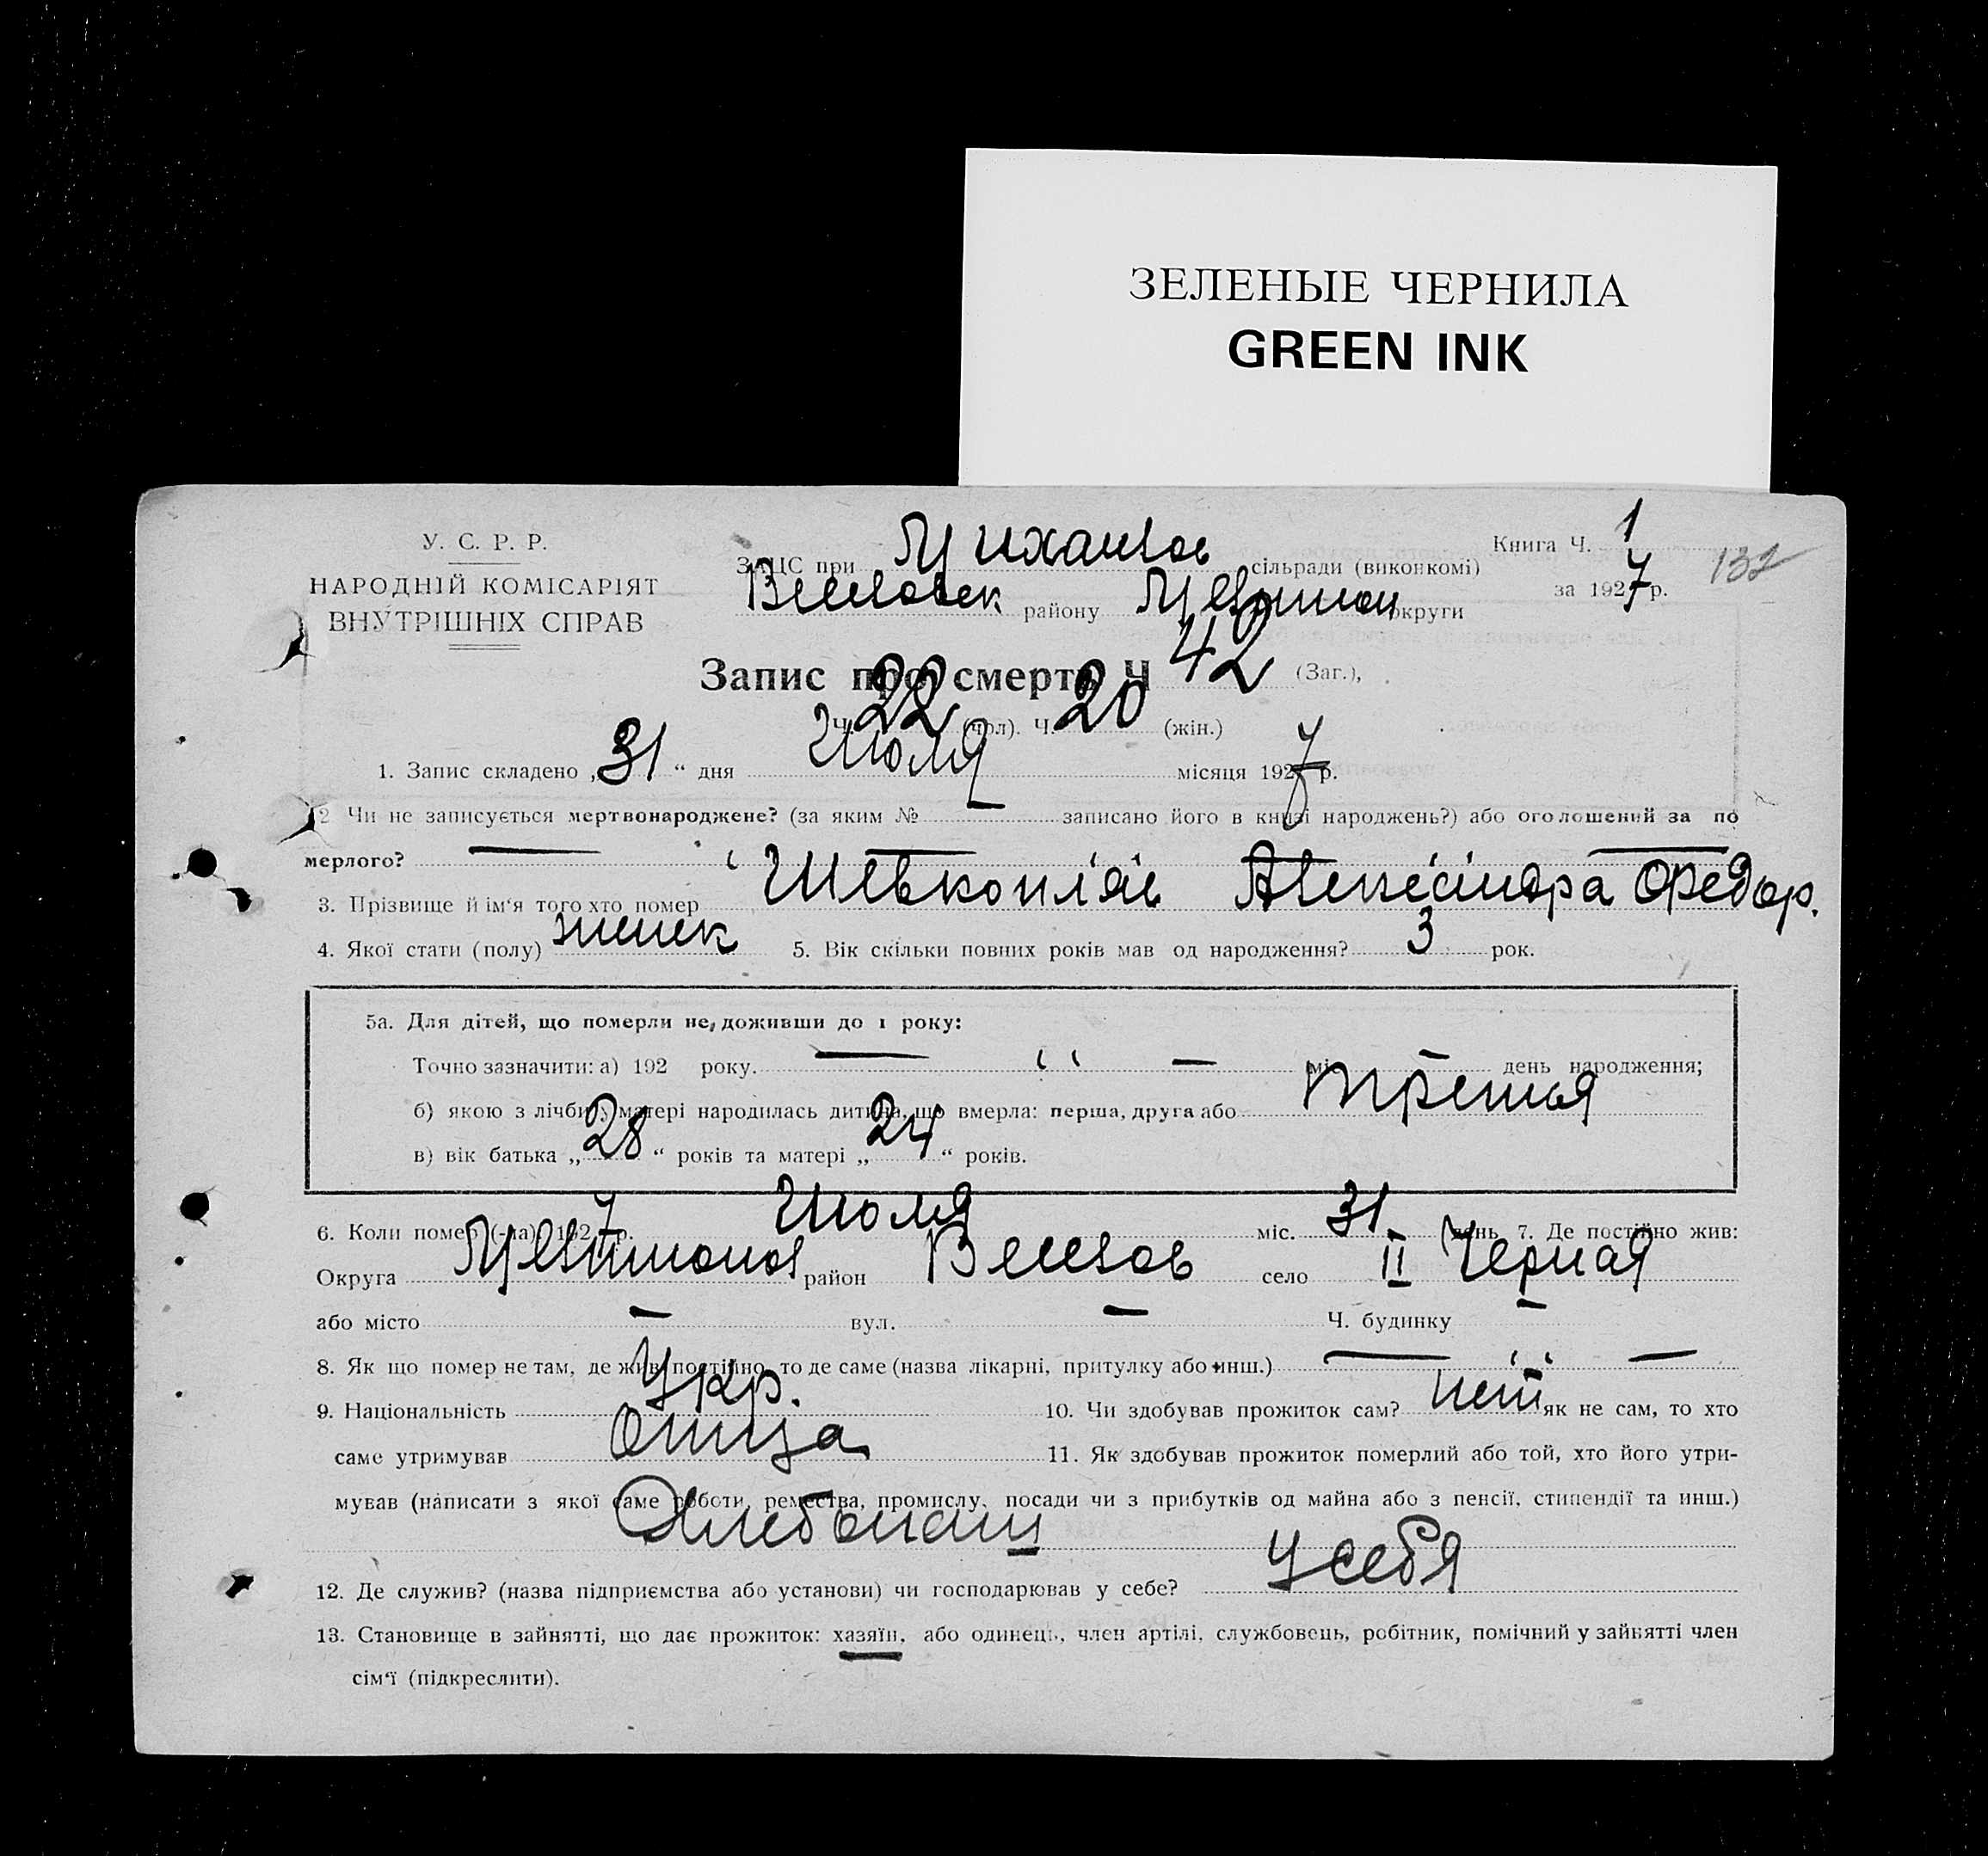 ЗЕЛЕНЫЕ ЧЕРНИЛА
GREEN INK
У. С. Р. Р.
НАРОДНІЙ КОМІСАРІЯТ
ВНУТРІШНІХ СПРАВ
ЗАЦС при Михайлов сільради (виконкомі)
Веселовск району Мелитоп округи
Книга Ч. 1
за 1927 р.
132
Запис про смерть Ч 42 (Заг.),
Ч. 22 (чол). Ч. 20 (жін.)
1. Запис складено „31“ дня Июля місяця 1927 р.
2 Чи не записується мертвонароджене? (за яким № записано його в книзі народжень?) або оголошений за по
мерлого? —
3. Прізвище й ім‘я того хто помер Шевкопляс Александра Федор.
4. Якої стати (полу) женск 5. Вік скільки повних років мав од народження? 3 рок.
5а. Для дітей, що померли не, доживши до 1 року:
Точно зазначити: а) 192 року. — „ — міс. — день народження;
б) якою з лічби у матері народилась дитина, що вмерла: перша, друга або третья
в) вік батька „28“ років та матері „24“ років.
6. Коли помер (-ла) 1927 р. Июля міс. 31 день 7. Де постійно жив:
Округа район Веселов село II Черная
або місто — вул. — Ч. будинку —
8. Як що помер не там, де жив постійно, то де саме (назва лікарні, притулку або инш.) — „ —
9. Національність Укр. 10. Чи здобував прожиток сам? нет як не сам, то хто
саме утримував Отца 11. Як здобував прожиток померлий або той, хто його утри-
мував (написати з якої саме роботи, ремества, промислу, посади чи з прибутків од майна або з пенсії, стипендії та инш.)
Хлебопаш
12. Де служив? (назва підприємства або установи) чи господарював у себе? У себя
13. Становище в зайнятті, що дає прожиток: хазяїн, або одинець, член артілі, службовець, робітник, помічний у зайнятті член
сім‘ї (підкреслити).